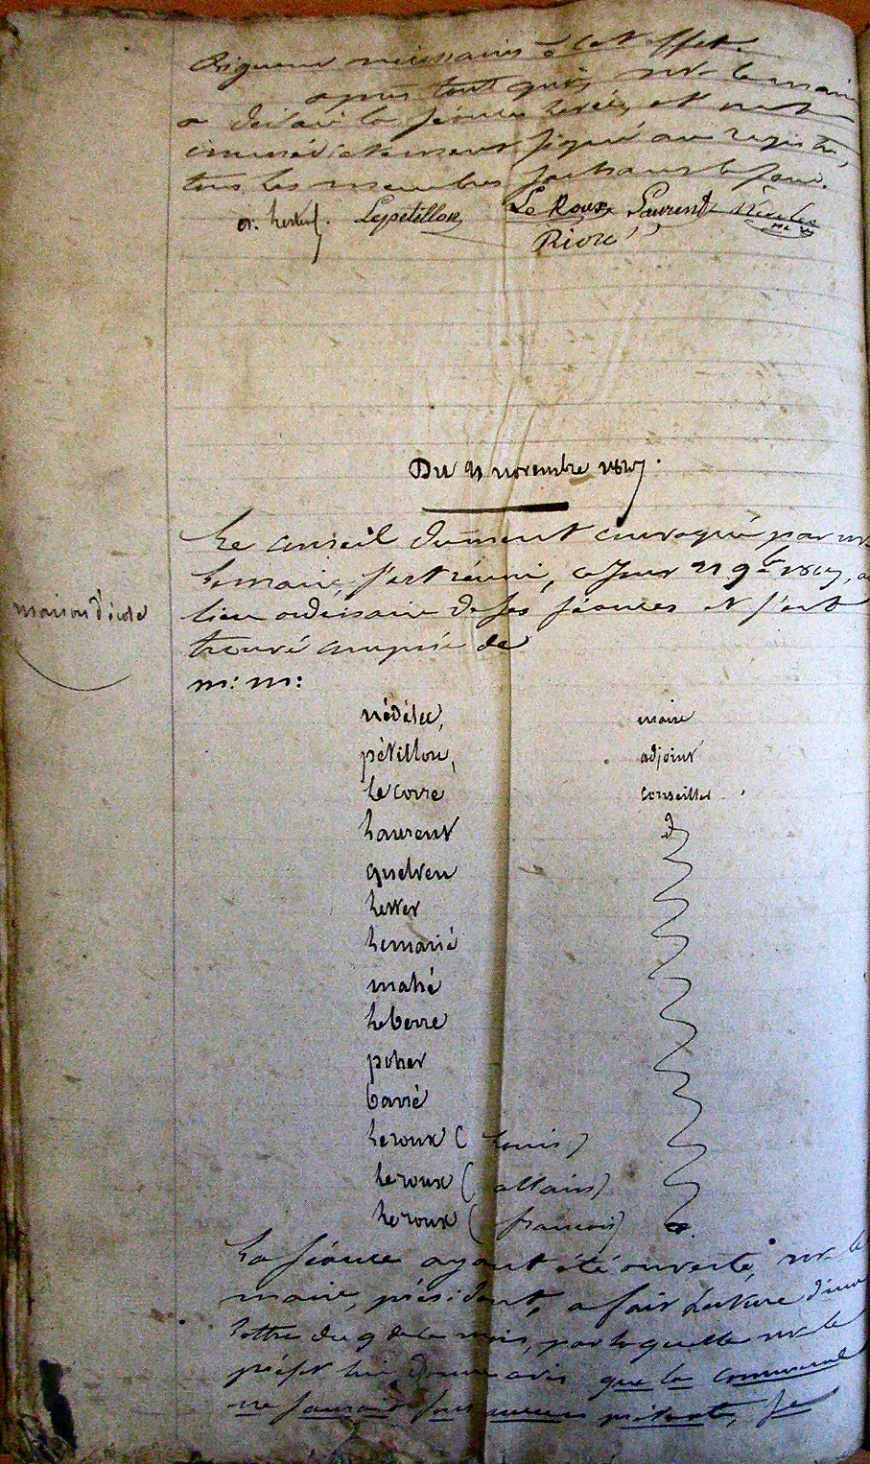 nécessaires à cet effet.
après tout quoi, mr le maire
a déclaré la séance levée, et ont
immédiatement signé au registre,
tous les membres sachant le faire.
Lepetillon Le Roux Laurent Nédélec
me
Du 21 novembre
Le conseil dument convoqué par mr
le maire, s'est réuni, ce jour 21 9bre, au
lieu ordinaire de ses séances et s'est
maison d'école
trouvé composé de
m: m:
nédélec, maire
pétillon, adjoint
le corre conseiller
laurent d
quelven
lemarié
mahé
leberre
poher
barré
leroux (louis)
leroux (allain)
leroux (francois)
La séance ayant été ouverte, mr le
maire, président, a fait lecture d'une
lettre du 9 de ce mois, par laquelle mr le
préfet lui donne avis que la commune
ne saurait sans